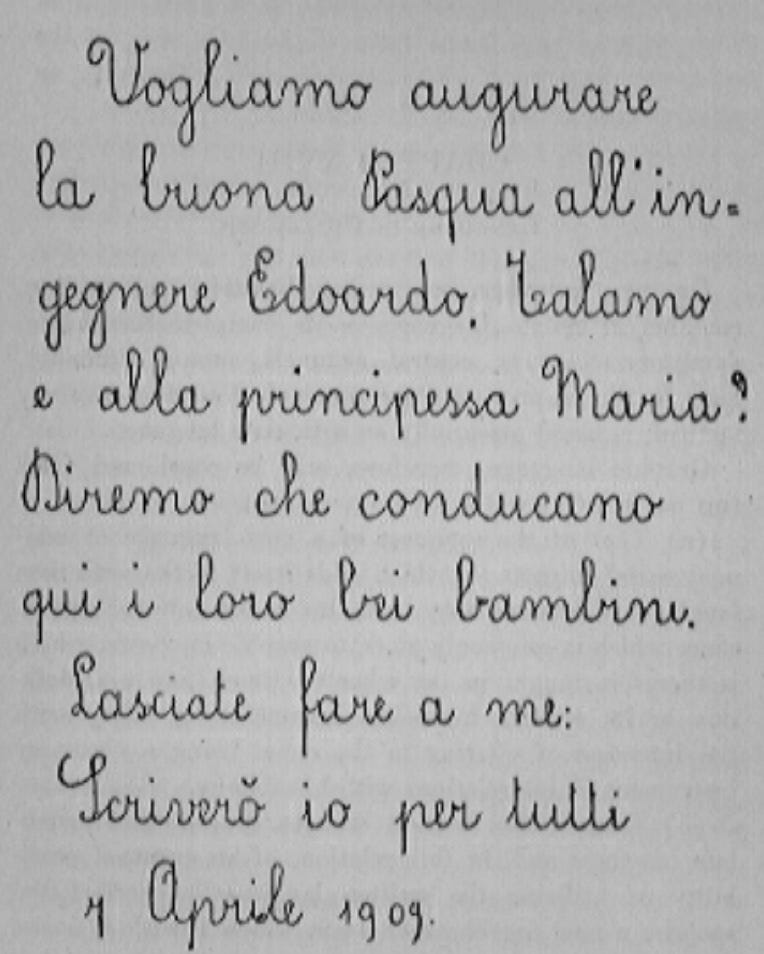 Vogliamo augurare
la buona Pasqua all'in=
gegnere Edoardo. Talamo
e alla principessa Maria?
Diremo che conducano
qui i loro bei bambini.
Lasciate fare a me:
Scriverŏ io per tutti
7 Aprile 1909.